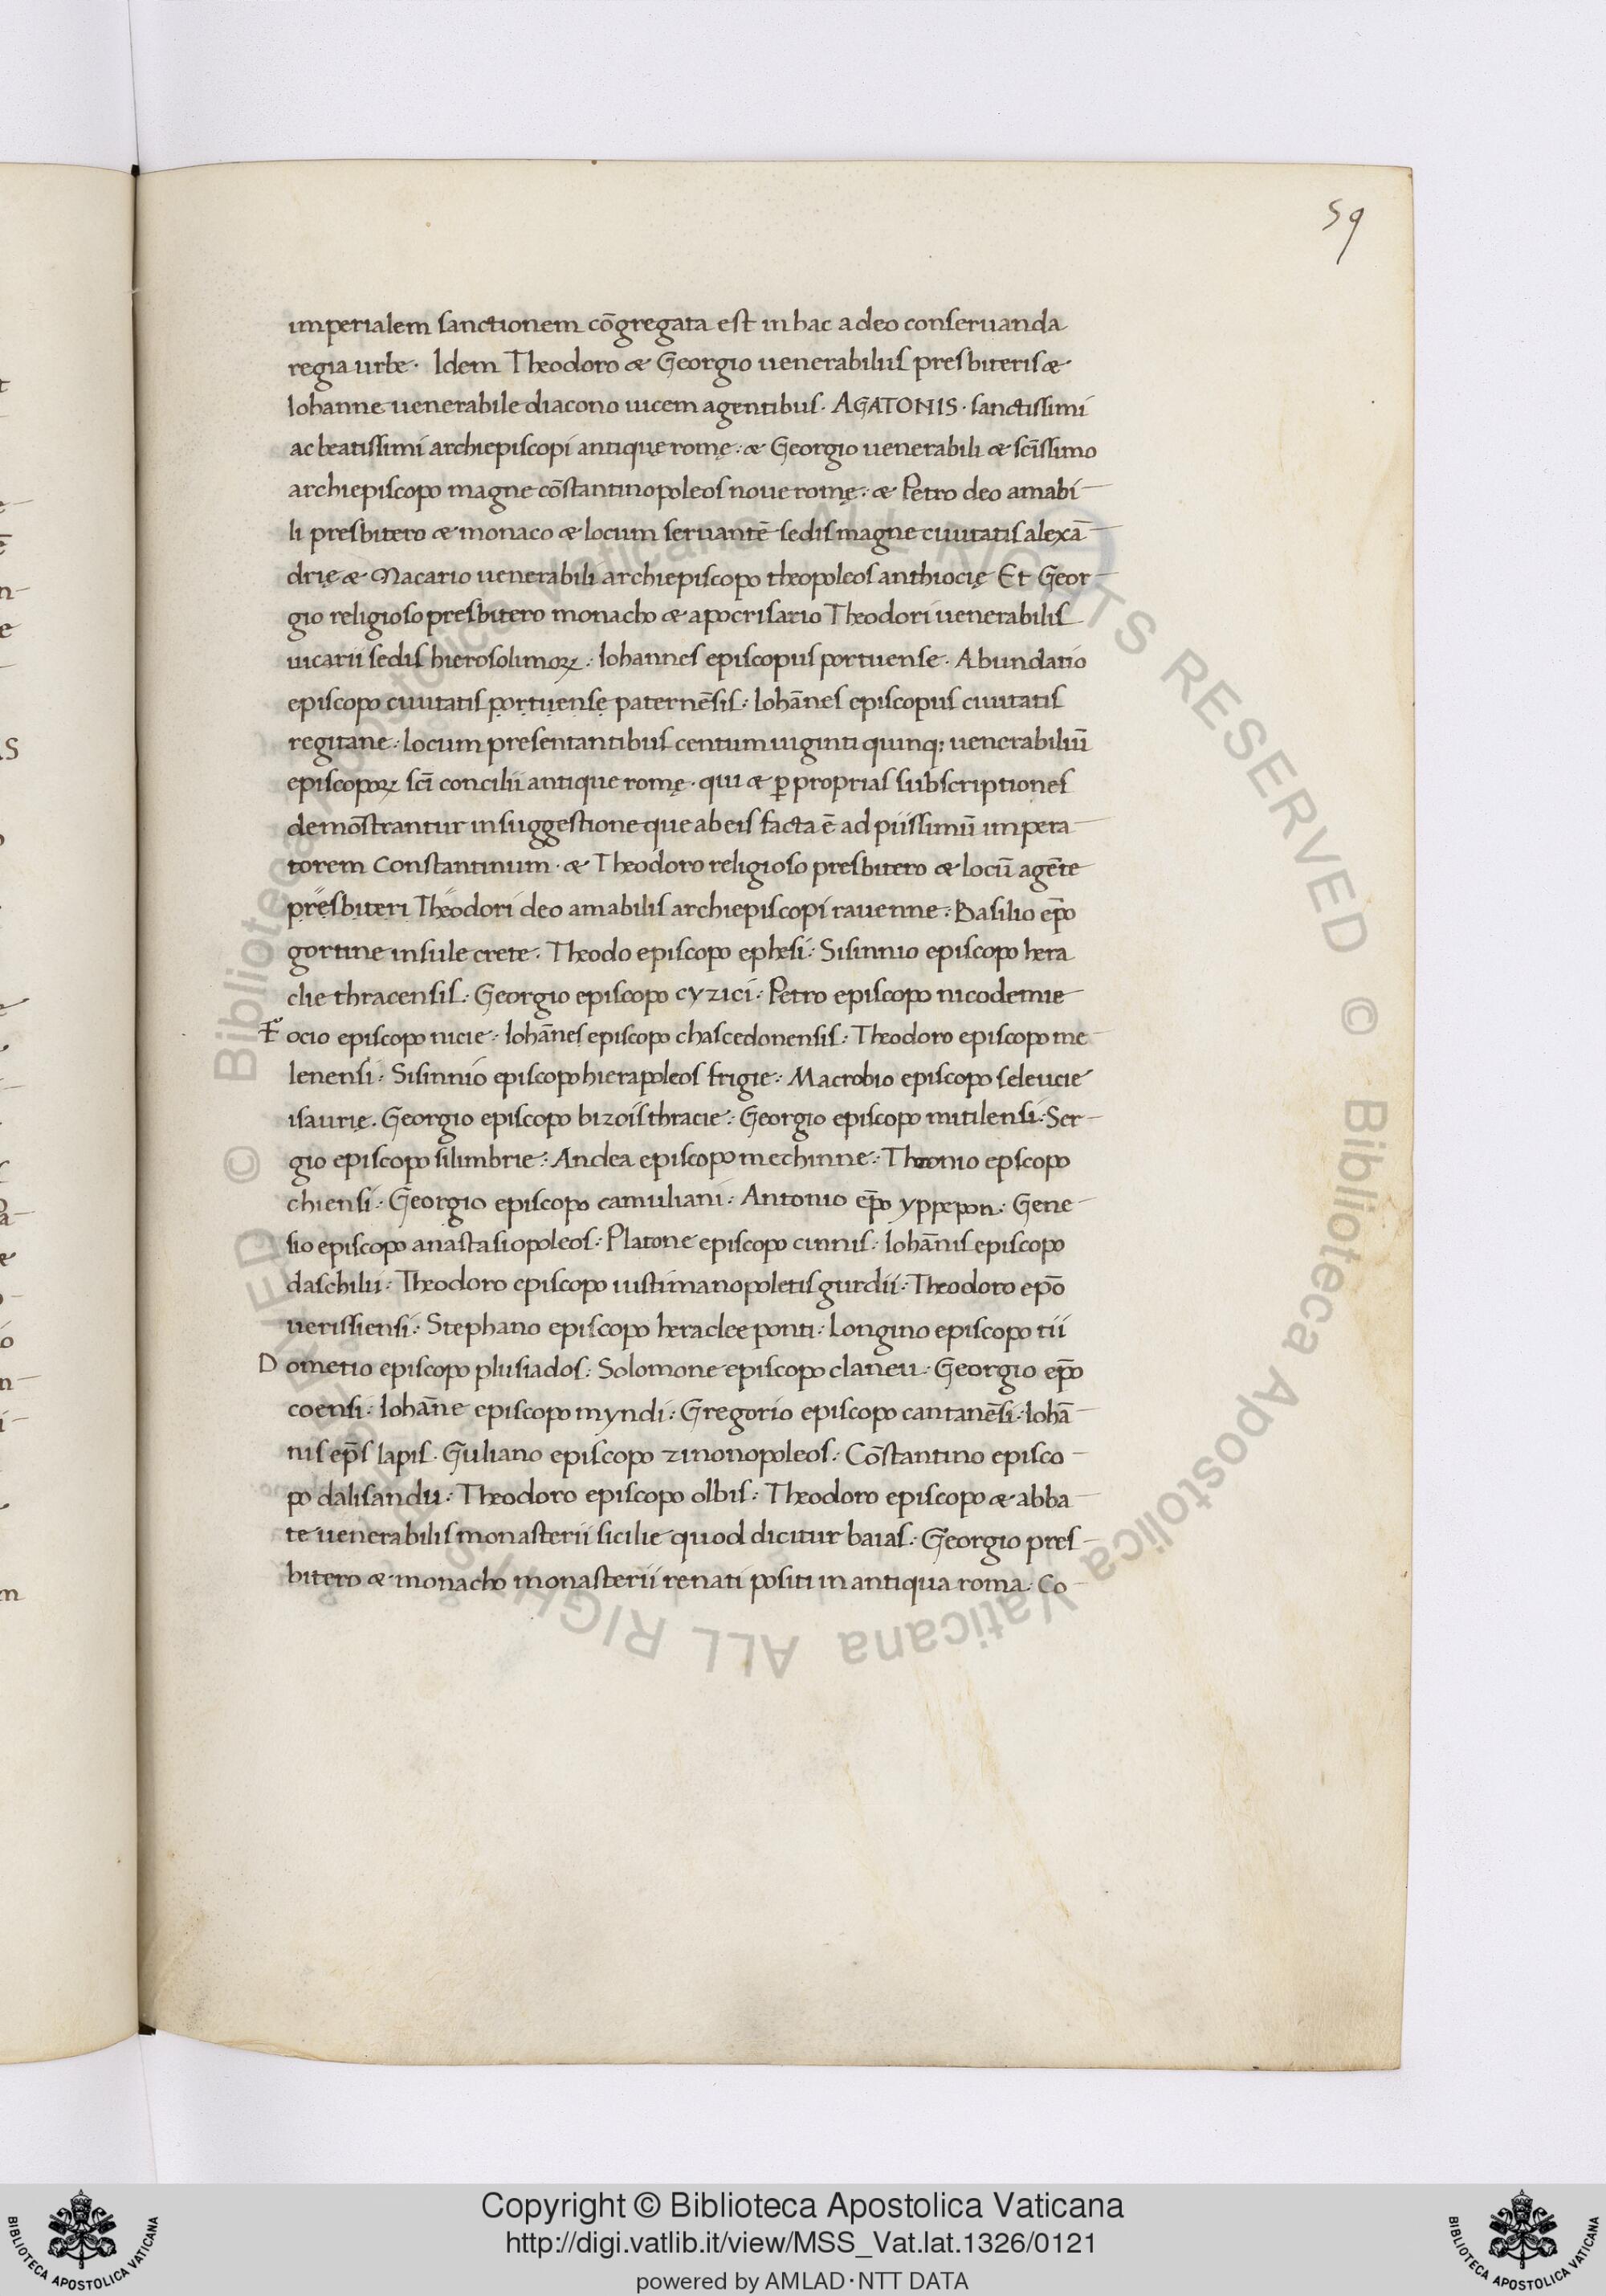 59
imperialem sanctionem cōgregata est in hac a deo conseruanda
regia urbe · Idem Theodoro & Georgio uenerabilius presbiteris &
Iohanne uenerabile diacono uicem agentibus · AGATONIS · sanctissimi
ac beatissimi archiepiscopi antiquę romę : & Georgio uenerabili & sc̄issimo
archiepiscopo magne cōstantinopoleos noue romę : & Petro deo amabi
li presbitero & monaco & locum seruantē sedis magne ciuitatis alexā
drię & Macario uenerabili archiepiscopo theopoleos anthiocię Et Geor
gio religioso presbitero monacho & apocrisario Theodori uenerabilis
uicarii sedis hierosolimoꝝ : Iohannes episcopus portuense · Abundatio
episcopo ciuitatis portuense paternēsis : Iohānes episcopus ciuitatis
regitane : locum presentantibus centum uiginti quinq; uenerabiliū
episcopoꝝ sc̄i concilii antique romę · qui & ꝑ proprias subscriptiones
demōstrantur in suggestione que ab eis facta ē ad piissimū impera
torem Constantinum · & Theodoro religioso presbitero & locū agēte
presbiteri Theodori deo amabilis archiepiscopi rauenne : Basilio ep̄o
gortine insule crete · Theodo episcopo ephesi : Sisinnio episcopo hera
clie thracensis : Georgio episcopo cyzici : Petro episcopo nicodemie
Focio episcopo nicie · Iohānes episcopo chascedonensis : Theodoro episcopo me
lenensi : Sisinnio episcopo hierapoleos frigie : Macrobio episcopo seleucie
isaurię . Georgio episcopo bizois thracie : Georgio episcopo mitilensi : Ser
gio episcopo silimbrie : Andea episcopo mechinne : Theonio epscopo
chiensi : Georgio episcopo camuliani : Antonio ep̄o yppepon : Gene
sio episcopo anastasiopoleos : Platone episcopo cinnis : Iohānis episcopo
daschilii : Theodoro episcopo iustimanopoletis gurdii : Theodoro epō
uerissiensi : Stephano episcopo heraclee ponti : Longino episcopo tii
Dometio episcopo plusiados : Solomone episcopo claneu : Georgio ep̄o
coensi : Iohāne episcopo myndi : Gregorio episcopo cantanēsi : Iohā
nis ep̄s lapis . Guliano episcopo zinonopoleos : Cōstantino episco
po dalisandu : Theodoro episcopo olbis : Theodoro episcopo & abba
te uenerabilis monasterii sicilie quod dicitur baias : Georgio pres
bitero & monacho monasterii renati positi in antiqua roma : Co
© Biblioteca Apostolica Vaticana ALL RIGHTS RESERVED © Biblioteca Apostolica Vaticana ALL RIGHTS RESERVED
BIBLIOTECA APOSTOLICA VATICANA
Copyright © Biblioteca Apostolica Vaticana
http://digi.vatlib.it/view/MSS_Vat.lat.1326/0121
powered by AMLAD·NTT DATA
BIBLIOTECA APOSTOLICA VATICANA